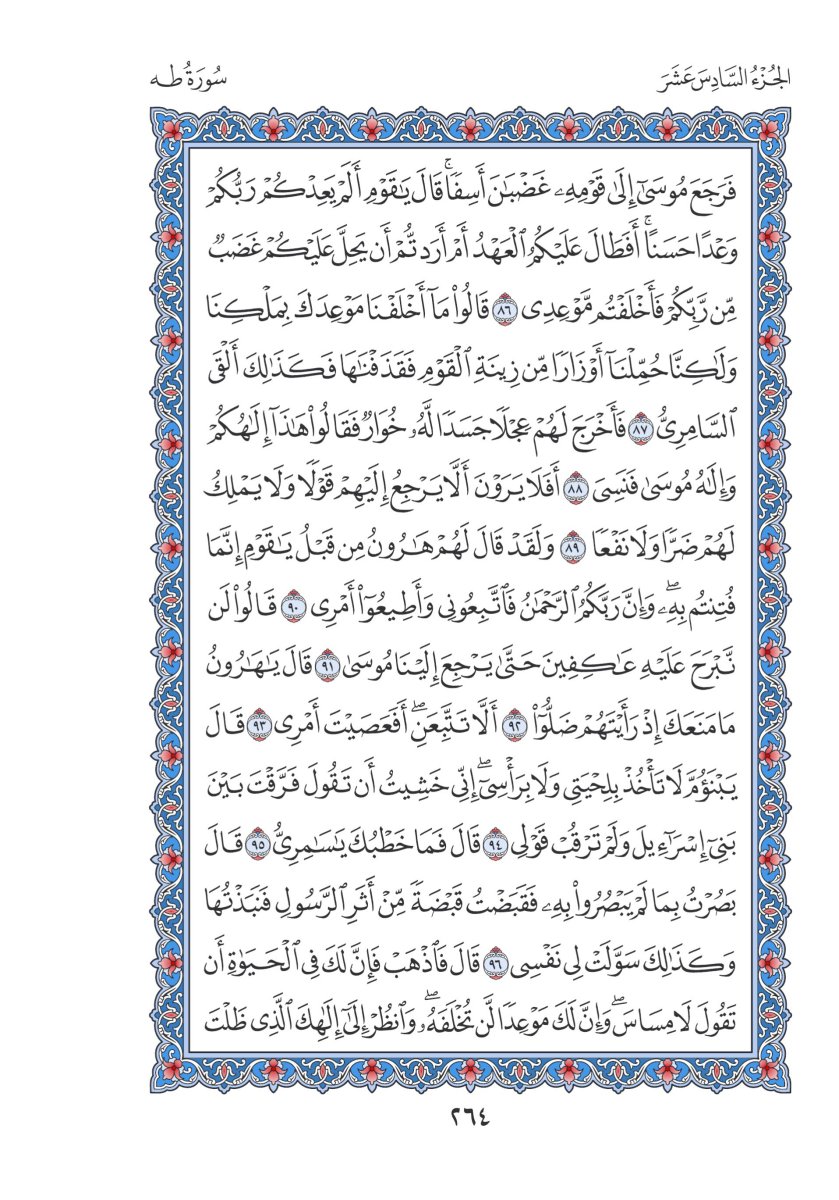 الجُزْءُ السَّادِسَ عَشَرَ
سُورَةُ طه
فَرَجَعَ مُوسَىٰٓ إِلَىٰ قَوْمِهِۦ غَضْبَٰنَ أَسِفࣰاۚ قَالَ يَٰقَوْمِ أَلَمْ يَعِدْكُمْ رَبُّكُمْ
وَعْدًا حَسَنًاۚ أَفَطَالَ عَلَيْكُمُ ٱلْعَهْدُ أَمْ أَرَدتُّمْ أَن يَحِلَّ عَلَيْكُمْ غَضَبࣱ
مِّن رَّبِّكُمْ فَأَخْلَفْتُم مَّوْعِدِى ٨٦ قَالُوا۟ مَآ أَخْلَفْنَا مَوْعِدَكَ بِمَلْكِنَا
وَلَٰكِنَّا حُمِّلْنَآ أَوْزَارࣰا مِّن زِينَةِ ٱلْقَوْمِ فَقَذَفْنَٰهَا فَكَذَٰلِكَ أَلْقَى
ٱلسَّامِرِىُّ ٨٧ فَأَخْرَجَ لَهُمْ عِجْلࣰا جَسَدࣰا لَّهُۥ خُوَارࣱ فَقَالُوا۟ هَٰذَآ إِلَٰهُكُمْ
وَإِلَٰهُ مُوسَىٰ فَنَسِىَ ٨٨ أَفَلَا يَرَوْنَ أَلَّا يَرْجِعُ إِلَيْهِمْ قَوْلࣰا وَلَا يَمْلِكُ
لَهُمْ ضَرࣰّا وَلَا نَفْعࣰا ٨٩ وَلَقَدْ قَالَ لَهُمْ هَٰرُونُ مِن قَبْلُ يَٰقَوْمِ إِنَّمَا
فُتِنتُم بِهِۦۖ وَإِنَّ رَبَّكُمُ ٱلرَّحْمَٰنُ فَٱتَّبِعُونِى وَأَطِيعُوٓا۟ أَمْرِى ٩٠ قَالُوا۟ لَن
نَّبْرَحَ عَلَيْهِ عَٰكِفِينَ حَتَّىٰ يَرْجِعَ إِلَيْنَا مُوسَىٰ ٩١ قَالَ يَٰهَٰرُونُ
مَا مَنَعَكَ إِذْ رَأَيْتَهُمْ ضَلُّوٓا۟ ٩٢ أَلَّا تَتَّبِعَنِۖ أَفَعَصَيْتَ أَمْرِى ٩٣ قَالَ
يَبْنَؤُمَّ لَا تَأْخُذْ بِلِحْيَتِى وَلَا بِرَأْسِىٓۖ إِنِّى خَشِيتُ أَن تَقُولَ فَرَّقْتَ بَيْنَ
بَنِىٓ إِسْرَٰٓءِيلَ وَلَمْ تَرْقُبْ قَوْلِى ٩٤ قَالَ فَمَا خَطْبُكَ يَٰسَٰمِرِىُّ ٩٥ قَالَ
بَصُرْتُ بِمَا لَمْ يَبْصُرُوا۟ بِهِۦ فَقَبَضْتُ قَبْضَةࣰ مِّنْ أَثَرِ ٱلرَّسُولِ فَنَبَذْتُهَا
وَكَذَٰلِكَ سَوَّلَتْ لِى نَفْسِى ٩٦ قَالَ فَٱذْهَبْ فَإِنَّ لَكَ فِى ٱلْحَيَوٰةِ أَن
تَقُولَ لَا مِسَاسَۖ وَإِنَّ لَكَ مَوْعِدࣰا لَّن تُخْلَفَهُۥۖ وَٱنظُرْ إِلَىٰٓ إِلَٰهِكَ ٱلَّذِى ظَلْتَ
٢٦٤